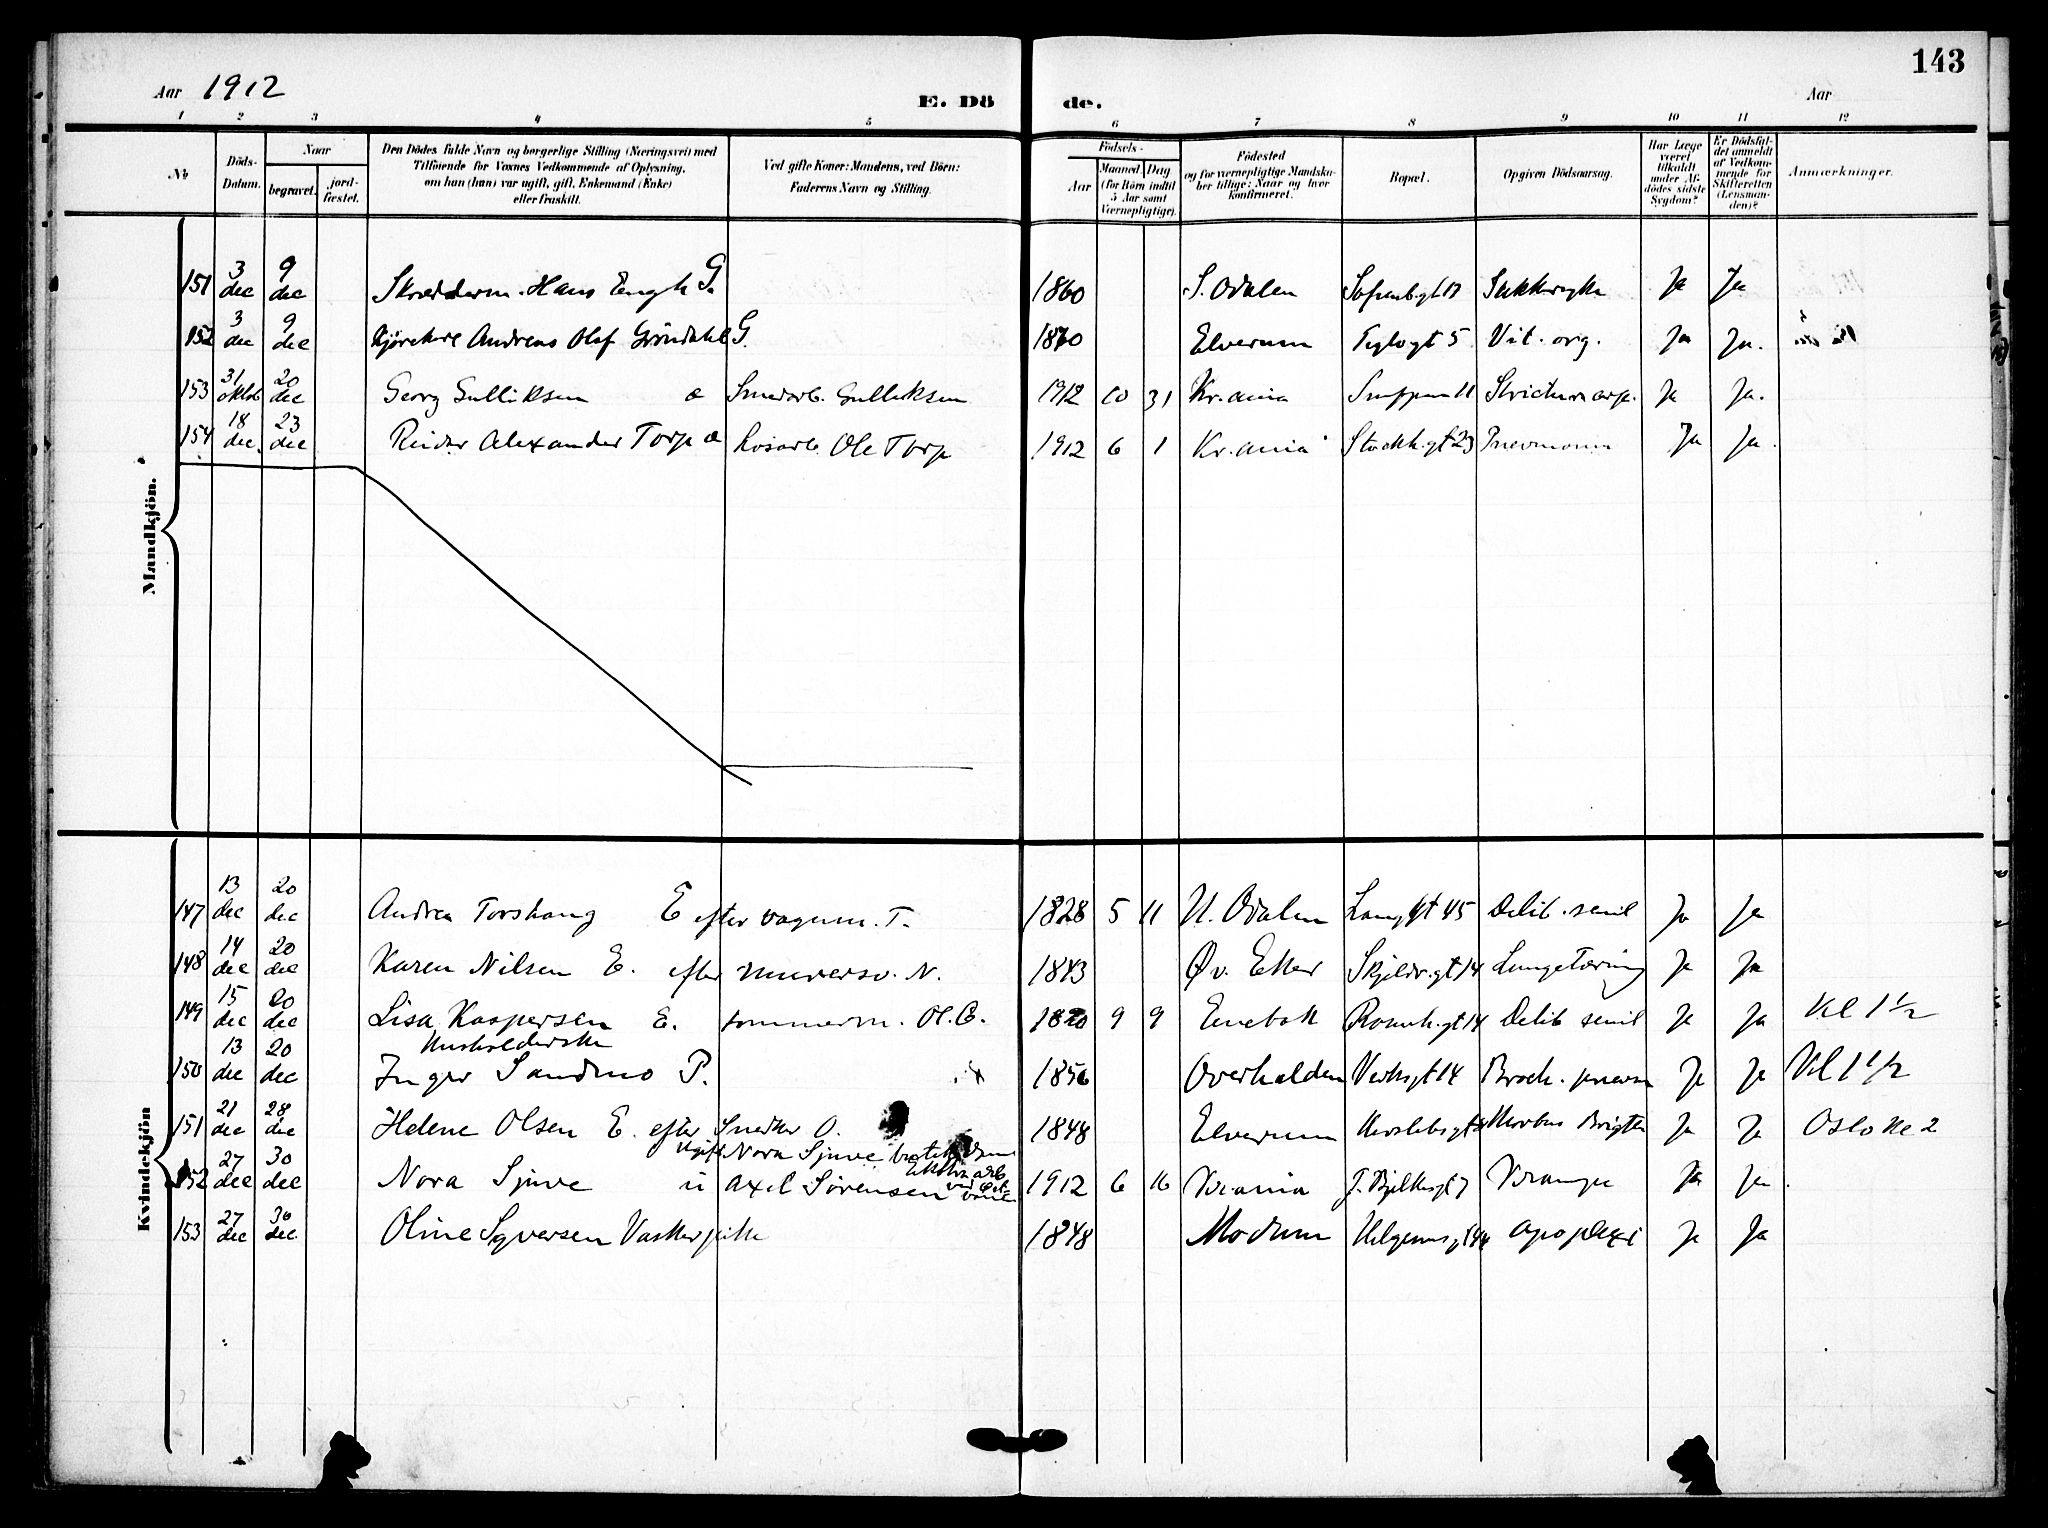 143
Aar 1912
E. Dö de.
Aar
1 2 3 4 5 6 7 8 9 10 11 12
No
Döds-Datum.
Naar
begravet.
jord-fæstet.
Den Dödes fulde Navn og borgerlige Stilling (Næringsvei) med
Tilföiende for Voxnes Vedkommende af Oplysning,
om han (hun) var ugift, gift, Enkemand (Enke)
eller fraskilt.
Ved gifte Koner: Mandens, ved Börn:
Faderens Navn og Stilling.
Födsels-
Aar
Maaned. Dag
(for Börn indtil
5 Aar samt
Værnepligtige).
Födested
og for værnepligtige Mandska-
ber tillige: Naar og hvor
konfirmeret.
Bopæl.
Opgiven Dödsaarsag.
Har Læge
været
tilkaldt
under Af-
dödes sidste
Sygdom?
Er Dödsfal-
det anmeldt
af Vedkom-
mende for
Skifteretten
(Lensman-
den)?
Anmærkninger.
Mandkjön.
151 3 dec 9 dec Skræderm. Hans Engh G. 1860 S. Odalen Sukkersyke Ja Ja
152 3 dec 9 dec Andreas Olaf Gröndahl G. Elverum Teglvgt 5 Vit. org. Ja Ja.
153 31 oktob 20 dec Georg Gulliksen æ Smedarb. Gulliksen 1912 10 31 Kr.ania Ja Ja.
154 18 dec. 23 dec Reidar Alexander Torp æ Ole Torp 1912 6 1 Kr.ania Stockh.gt 23 Pneumoni Ja Ja.
Kvindekjön
147 13 dec 20 dec Andrea Torshaug E efter vognm. T. 1828 5 11 N. Odalen Langgt 45 Debil. senil Ja Ja
148 14 dec 20 dec Karen Nilsen E. efter murersv. N. 1843 Øv. Eker Skjeldr.gt 14 Lungetæring Ja Ja
149 15 dec 20 dec Lisa Kaspersen E. tømmerm. Ol. C. 1820 9 9 Enebak Rosenh.gt 14 Debil senil Ja Ja Kl 1 1/2
Husholderske
150 13 dec 20 dec Inger Sandmo P. 1856 Overhalden Verksgt 14 Bronch. pneum Ja Ja Kl 1 1/2
151 21 dec 28 dec Helene Olsen E. efter Snedker O. 1848 Elverum Herslebsgt Morbus Brigthi Ja Ja Oslo Kl 2
Ugift Nora Sjuve
152 27 dec 30 dec Nora Sjuve u Axel Sörensen 1912 6 16 Kr.ania J. Bjelkesgt 7 Krampe Ja Ja.
153 27 dec 30 dec. Oline Syversen Vaskerpike 1848 Modum Helgensgt 44 apoplexi Ja Ja